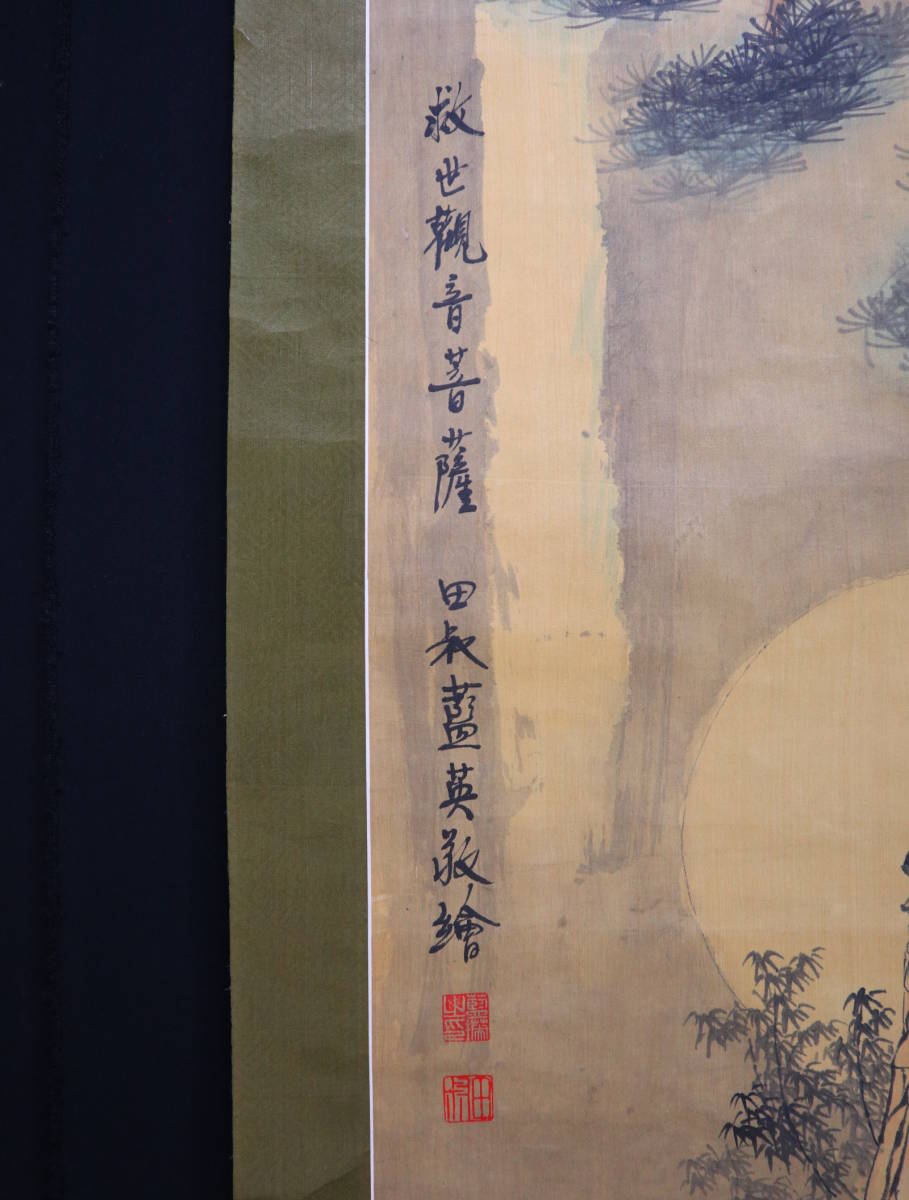 救世觀音菩薩 田叔藍英敬繪